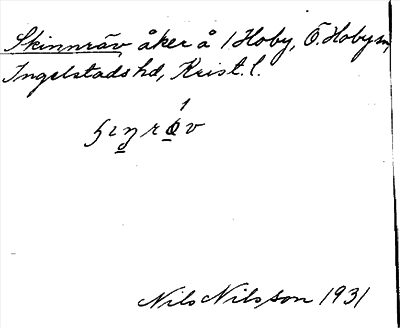 Skinnräv åker å 1 Hoby, Ö. Hoby sn,
Ingelstads hd, Krist. l.
Nils Nilsson 1931